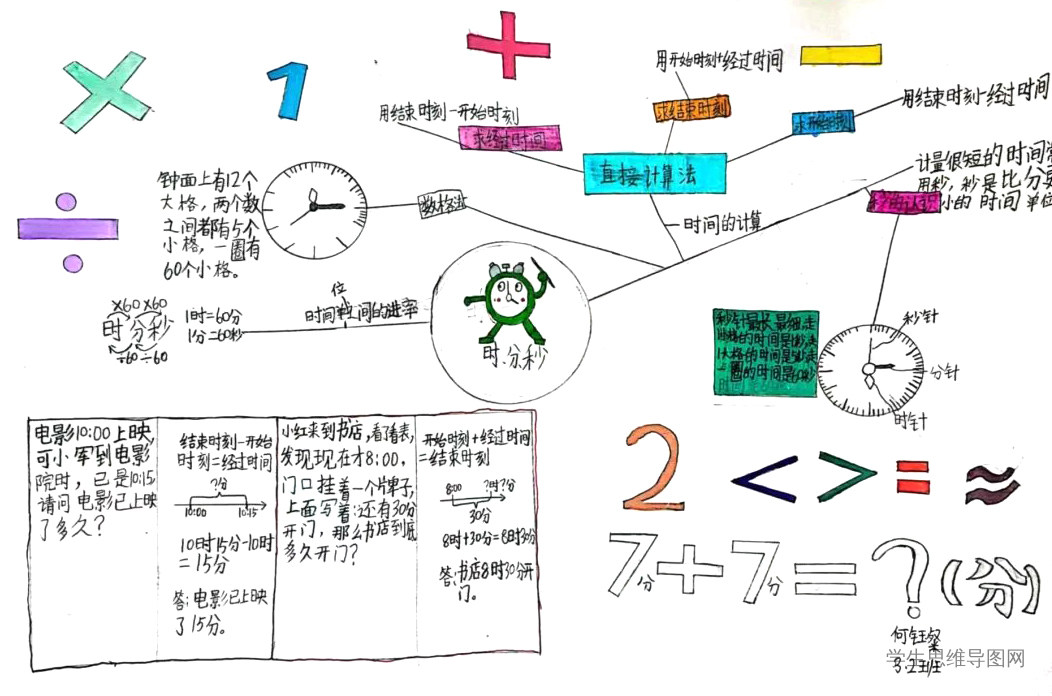 1
用开始时刻+经过时间
求结束时刻
用结束时刻-经过时间
求开始时刻
用结束时刻-开始时刻
求经过时间
直接计算法
时间的计算
计量很短的时间常
用秒,秒是比分更
小的时间单位
秒的认识
钟面上有12个
大格,两个数
之间都有5个
小格,一圈有
60个小格。
数格法
位
时间单之间的进率
×60 ×60
时 分 秒
÷60 ÷60
1时=60分
1分=60秒
时、分、秒
秒针最长最细,走
1小格的时间是1秒,走
1大格的时间是5秒,走
一圈的时间是60秒
秒针
分针
时针
电影10:00上映,
可小军到电影
院时,已是10:15,
请问电影已上映
了多久?
结束时刻-开始
时刻=经过时间
?分
10:00 10:15
10时15分-10时
=15分
答:电影已上映
了15分。
小红来到书店,看了看表,
发现现在才8:00,
门口挂着一个牌子,
上面写着:还有30分
开门,那么书店到底
多久开门?
开始时刻+经过时间
=结束时刻
8:00 ?时?分
30分
8时+30分=8时30分
答:书店8时30分开
门。
2 < > = ≈
7分+7分=?(分)
何钰
3.2班
学生思维导图网